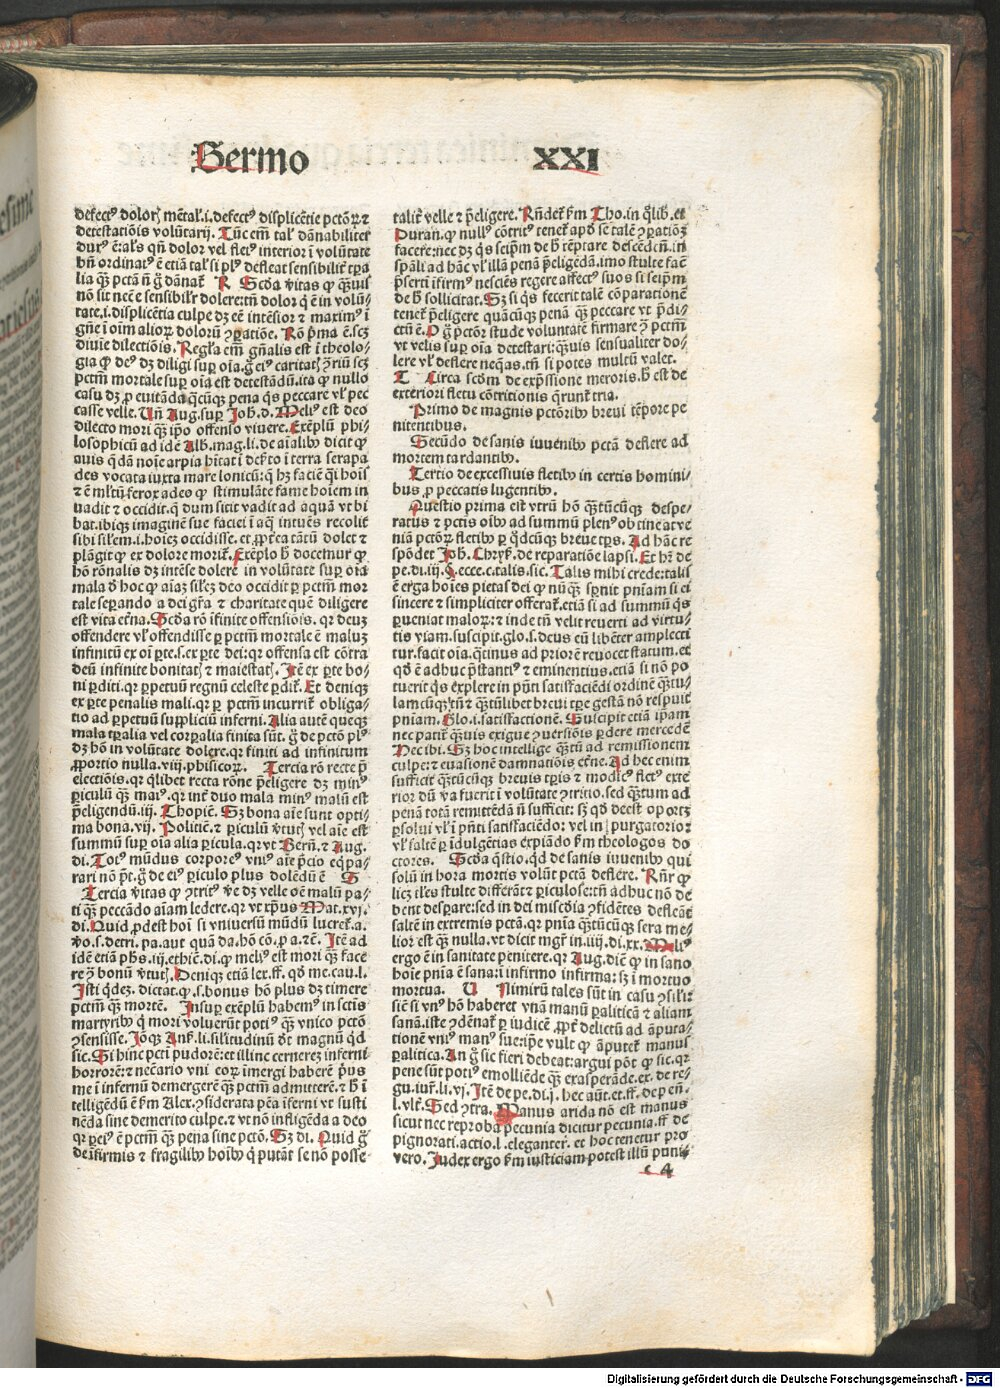 Sermo XXI
defectꝰ doloꝝ mētaľ.i.defectꝰ displicētie pctōꝝ ⁊
detestatiōis volūtarij. Tūc em̄ taľ dānabiliter
durꝰ ē: al's qn̄ dolor vel fletꝰ interior ī volūtate
bn̄ ordinatꝰ ē etiā taľ si plꝰ defleat sensibilit̄ tꝑa
lia qꝫ pctā nō sit necē e sensibilr̄ dolere: tn̄ dolor q̇ ē in volū⸗
tate.i.displicētia culpe dꝫ eē intēsior ⁊ maximꝰ ī
gn̄e ī oīm alioꝝ doloꝝ ꝯꝑatiōe. Rō pͥma ē.scꝫ
diuīe dilectiōis. Regľa em̄ gn̄alis est ī theolo⸗
gia ꝙ deꝰ dꝫ diligi suꝑ oīa.
pctm̄ mortale suꝑ oīa est detestādū. ita ꝙ nullo
casu dꝫ ꝓ euitāda
casse velle. Vn̄ Aug. suꝑ Joh. d. Meliꝰ est deo
dilecto mori qꝫ ip̄o offenso viuere. Exēplū phi⸗
losophicū ad idē Alb. mag. li. de aīalibꝰ dicit ꝙ
auis q̄dā noīe arpia hītat ī deſto ī terra serapa
des vocata iuxta mare Ionicū: q̇ hꝫ faciē q̄i hoīs
⁊ ē ml̄tū ferox adeo ꝙ stimulāte fame hoīem in
uadit ⁊ occidit. q̇ dum sitit vadit ad aquā vt bi
bat. ibiqꝫ imaginē sue faciei ī aq̄ intuēs recolit
sibi siľem.i. hoīeꝫ occidisse. et ꝓpt̄ea tātū dolet ⁊
plāgit ꝙ ex dolore morit̄. Exēplo h̄ docemur ꝙ
hō rōnalis dꝫ intēse dolere in volūtate suꝑ oīa
mala d̄ hoc ꝙ aīaꝫ siľeꝫ deo occidit ꝑ pctm̄ mor
tale seꝑando a dei gr̄a ⁊ charitate quē diligere
est vita et̄na. Scḋa rō īfinite offensiōis. qꝛ deuꝫ
offendere vľ offendisse ꝑ pctm̄ mortale ē maluꝫ
infinitū ex oī ꝑte.s. ex ꝑte dei: qꝛ offensa est cōtra
deū infinite bonitaꝭ ⁊ maiestaꝭ. Itē ex ꝑte bo⸗
ni ꝑditi. qꝛ ꝑpetuū regnū celeste ꝑdit̄. Et deniqꝫ
ex ꝑte penalis mali. qꝛ ꝑ pctm̄ incurrit̄ obliga⸗
tio ad ꝑpetuū suppliciū inferni. Alia autē queqꝫ
mala tꝑalia vel corꝑalia finita sūt. g̊ de pctō plꝰ
dꝫ hō in volūtate dolere. qꝛ finiti ad infinitum
ꝓportio nulla. viij. phisicoꝝ. Tercia rō recte p̄
electiōis. qꝛ q̄libet recta rōne p̄eligere dꝫ minꝰ
ꝑiculū qꝫ maiꝰ. qꝛ int̄ duo mala minꝰ malū est
p̄eligendū. iij. Thopic̄. Sꝫ bona aīe sunt opti⸗
ma bona. vij. Politic̄. ⁊ ꝑiculū vtuꝭ vel aīe est
summū suꝑ oīa alia ꝑicula. qꝛ vt Bern̄. ⁊ Aug.
di. Totꝰ mūdus corporeꝰ vniꝰ aīe p̄cio eq̄pa⸗
rari nō pt̄. g̊ de eiꝰ ꝑiculo plus dolēdū ē S
Tercia v̄itas ꝙ ꝯtritꝰ v̄e dꝫ velle oē malū pa⸗
ti qꝫ peccādo aīam ledere. qꝛ vt xp̄us Mat. xvj.
di. Quid ꝓdest hoī si vniuersū mūdū lucret̄. a.
v̄o. s. detri. pa. aut quā da. hō cō. ꝓ a. ⁊c̄. Itē ad
idē etiā phs. iij. ethic̄. di. ꝙ meliꝰ est mori qꝫ face
re ꝯ bonū v̄tuꝭ. Deniqꝫ etiā lex. ff. qḋ me. cau. l.
Isti qḋeꝫ. dictat. ꝙ. s. bonus hō plus dꝫ timere
pctm̄ qꝫ mortē. Insuꝑ exēplū habemꝰ in scīs
martyribꝰ q̇ mori voluerūt potiꝰ qꝫ vnico pctō
ꝯsensisse. Jōqꝫ Ans. li. silitudinū d̄t magnū qḋ
sic. Si hinc pcti pudorē: et illinc cernereꝫ inferni
horrorē: ⁊ necārio vni eoꝝ īmergi haberē pͥus
me ī infernū demergerē qꝫ pctm̄ admitterē. ⁊ h̄ ī
telligēdū ē ẜm Alex. ꝯsiderata pēa īferni vt susti
nēda sine demerito culpe. ⁊ vt nō infligēda a deo
qꝛ peiꝰ ē pctm̄ qꝫ pena sine pctō. Sꝫ di. Quid g̊
de īfirmis ⁊ fragilibꝰ hoībꝰ q̇ putāt se nō posse⸗
talit̄ velle ⁊ p̄eligere. Rn̄det̄ ẜm Tho. in q̄lib. et
Duran. ꝙ nullꝰ cōtritꝰ tenet̄ apḋ se talē ꝯꝑatiōꝫ
facere: nec dꝫ q̇s seip̄m de h̄ tēptare descēdēn̄. in
sp̄ali ad hāc vľ illā penā p̄eligēdā. imo stulte faē
p̄serti īfirmꝰ nesciēs regere affectꝰ suos si seip̄m
de h̄ sollicitat. Sꝫ si q̇s fecerit talē cōparationē
tenet̄ p̄eligere quācūqꝫ penā qꝫ peccare vt p̄di⸗
ctū ē. O g̊ pctōr stude voluntatē firmare ꝯ pctm̄
vt velis suꝑ oīa detestari: qꝫuis sensualiter do⸗
lere vľ deflere neq̄as. tn̄ si potes multū valet.
T Circa scḋm de exp̄ssione meroris. h̄ est de
exteriori fletu cōtritionis q̄runt̄ tria.
Primo de magnis pctōribꝰ breui tēpore pe
nitentibus.
Secūdo de sanis iuuenibꝰ pctā deflere ad
mortem tardantibꝰ.
Tertio de excessiuis fletibꝰ in certis homini⸗
bus ꝓ peccatis lugentibꝰ.
Questio prima est vtrū hō qꝫtūcūqꝫ despe⸗
ratus ⁊ pctis oībꝰ ad summū plenꝰ obtineat ve
niā pctōꝝ fletibꝰ ꝑ qḋcūqꝫ breue tꝑs. Ad hāc re
spōdet Joh. Chryſ. de reparatiōe lapsi. Et hr̄ de
pe. di. iij. §. ecce. c. talis. sic. Talis mihi crede: talis
ē erga hoīes pietas dei ꝙ nūqꝫ sp̄nit pn̄iam si ei
sincere ⁊ simpliciter offerat̄. etiā si ad summū q̇s
ꝑueniat maloꝝ: ⁊ inde tn̄ velit reuerti ad virtu⸗
tis viam. suscipit. glo. s. deus eū libēter amplecti
tur. facit oīa. q̄tinus ad priorē reuocet statum. et
qḋ ē adhuc p̄stantiꝰ ⁊ eminentius. etiā si nō po
tuerit q̇s explere in pn̄ti satisfaciēdi ordinē qꝫtu⸗
lamcūqꝫ: tn̄ ⁊ qꝫtūlibet breui tꝑe gestā nō respuit
pn̄iam. Glo. i. satisfactionē. Suscipit etiā ip̄am
nec patit̄ qꝫuis exigue ꝯuersiōis ꝑdere mercedē
Hec ibi. Sꝫ hoc intellige qꝫtū ad remissionem
culpe: ⁊ euasionē damnatiōis et̄ne. Ad hec enim
sufficit qꝫtūcūqꝫ breuis tꝑis ⁊ modicꝰ fletꝰ exte
rior dū v̄a fuerit ī volūtate ꝯtritio. sed qꝫtum ad
penā totā remittēdā nō sufficit: sꝫ qḋ deest oportꝫ
ꝑsolui vľ ī pn̄ti satisfaciēdo: vel in purgatorio:
vľ salt̄ ꝑ īdulgētias expiādo ẜm theologos do
ctores. Scḋa q̄stio. qḋ de sanis iuuenibꝰ qui
solū in hora mortis volūt pctā deflere. Rn̄r ꝙ
licꝫ tľes stulte differāt ⁊ ꝑiculose: tn̄ adhuc nō de
bent desꝑare: sed in dei miscḋia ꝯfidētes defleāt
saltē in extremis pctā. qꝛ pn̄ia qꝫtūcūqꝫ sera me⸗
lior est qꝫ nulla. vt dicit mgr̄ in. iiij. di. xx. Meliꝰ
ergo ē in sanitate penitere. qꝛ Aug. dic̄ ꝙ in sano
hoīe pn̄ia ē sana: ī infirmo infirma: sꝫ ī mortuo
mortua. V Nimirū tales sūt in casu ꝯsili:
sic̄ si vnꝰ hō haberet vnā manū paliticā ⁊ aliam
sanā. iste ꝯdēnat̄ ꝑ iudicē ꝓpt̄ delictū ad āputa⸗
tionē vniꝰ manꝰ sue: ip̄e vult ꝙ āputet̄ manus
palitica. An g̊ sic fieri debeat: argui pōt ꝙ sic. qꝛ
pene sūt potiꝰ emolliēde qꝫ exasperāde. ex. de re⸗
gu. iur̄. li. vj. Itē de pe. di. j. hec aūt. et. ff. de pen̄.
l. vlt̄. Sed ꝯtra. Manus arida nō est manus
sicut nec reproba pecunia dicitur pecunia. ff. de
pignorati. actio. l. eleganter. et hoc tenetur pro
vero. Judex ergo ẜm iusticiam potest illū puni⸗
c 4
Digitalisierung gefördert durch die Deutsche Forschungsgemeinschaft - DFG